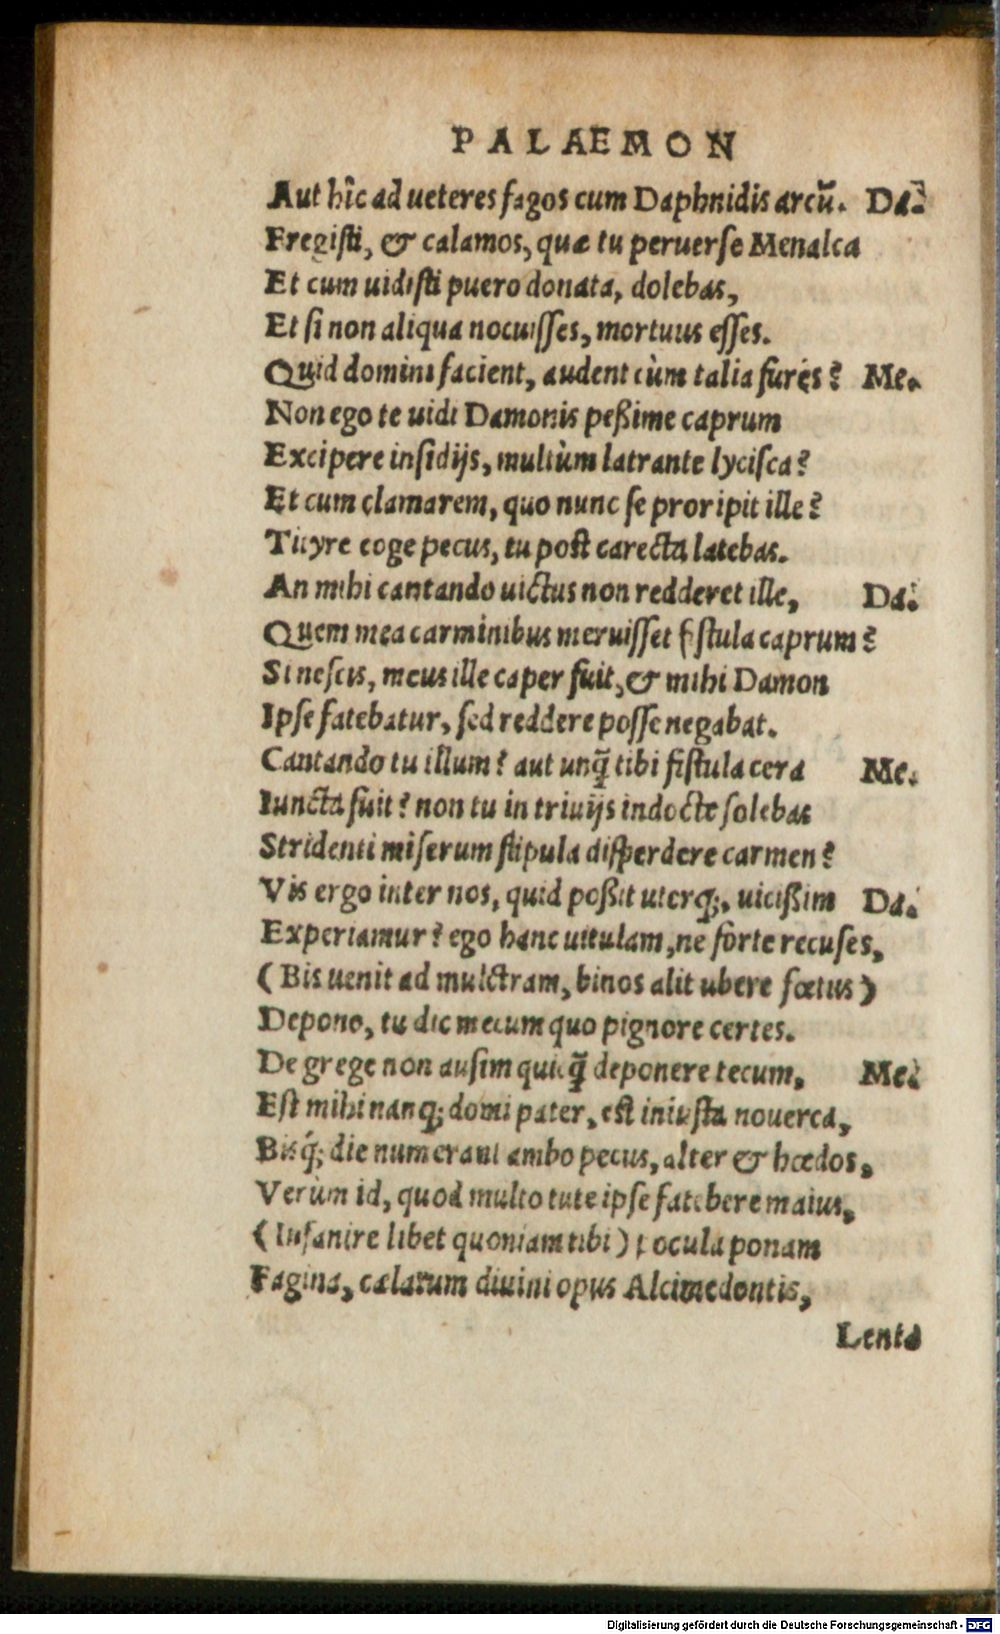 PALAEMON
Aut hîc ad ueteres fagos cum Daphnidis arcū. Da.
Fregisti, & calamos, quæ tu peruerse Menalca
Et cum uidisti puero donata, dolebas,
Et si non aliqua nocuisses, mortuus esses.
Quid domini facient, audent cùm talia fures? Me.
Non ego te uidi Damonis peßime caprum
Excipere insidijs, multùm latrante lycisca?
Et cum clamarem, quo nunc se proripit ille?
Tityre coge pecus, tu post carecta latebas.
An mihi cantando uictus non redderet ille, Da.
Quem mea carminibus meruisset fistula caprum?
Si nescis, meus ille caper fuit, & mihi Damon
Ipse fatebatur, sed reddere posse negabat.
Cantando tu illum? aut unq̄ tibi fistula cera Me.
Iuncta fuit? non tu in triuijs indocte solebas
Stridenti miserum stipula disperdere carmen?
Vis ergo inter nos, quid poßit uterq;, uicißim Da.
Experiamur? ego hanc uitulam, ne forte recuses,
(Bis uenit ad mulctram, binos alit ubere fœtus)
Depono, tu dic mecum quo pignore certes.
De grege non ausim quicq̄ deponere tecum, Me.
Est mihi nanq; domi pater, est iniusta nouerca,
Bisq́; die numerant ambo pecus, alter & hœdos,
Verùm id, quod multo tute ipse fatebere maius,
(Insanire libet quoniam tibi) pocula ponam
Fagina, cælatum diuini opus Alcimedontis,
Lenta
Digitalisierung gefördert durch die Deutsche Forschungsgemeinschaft - DFG